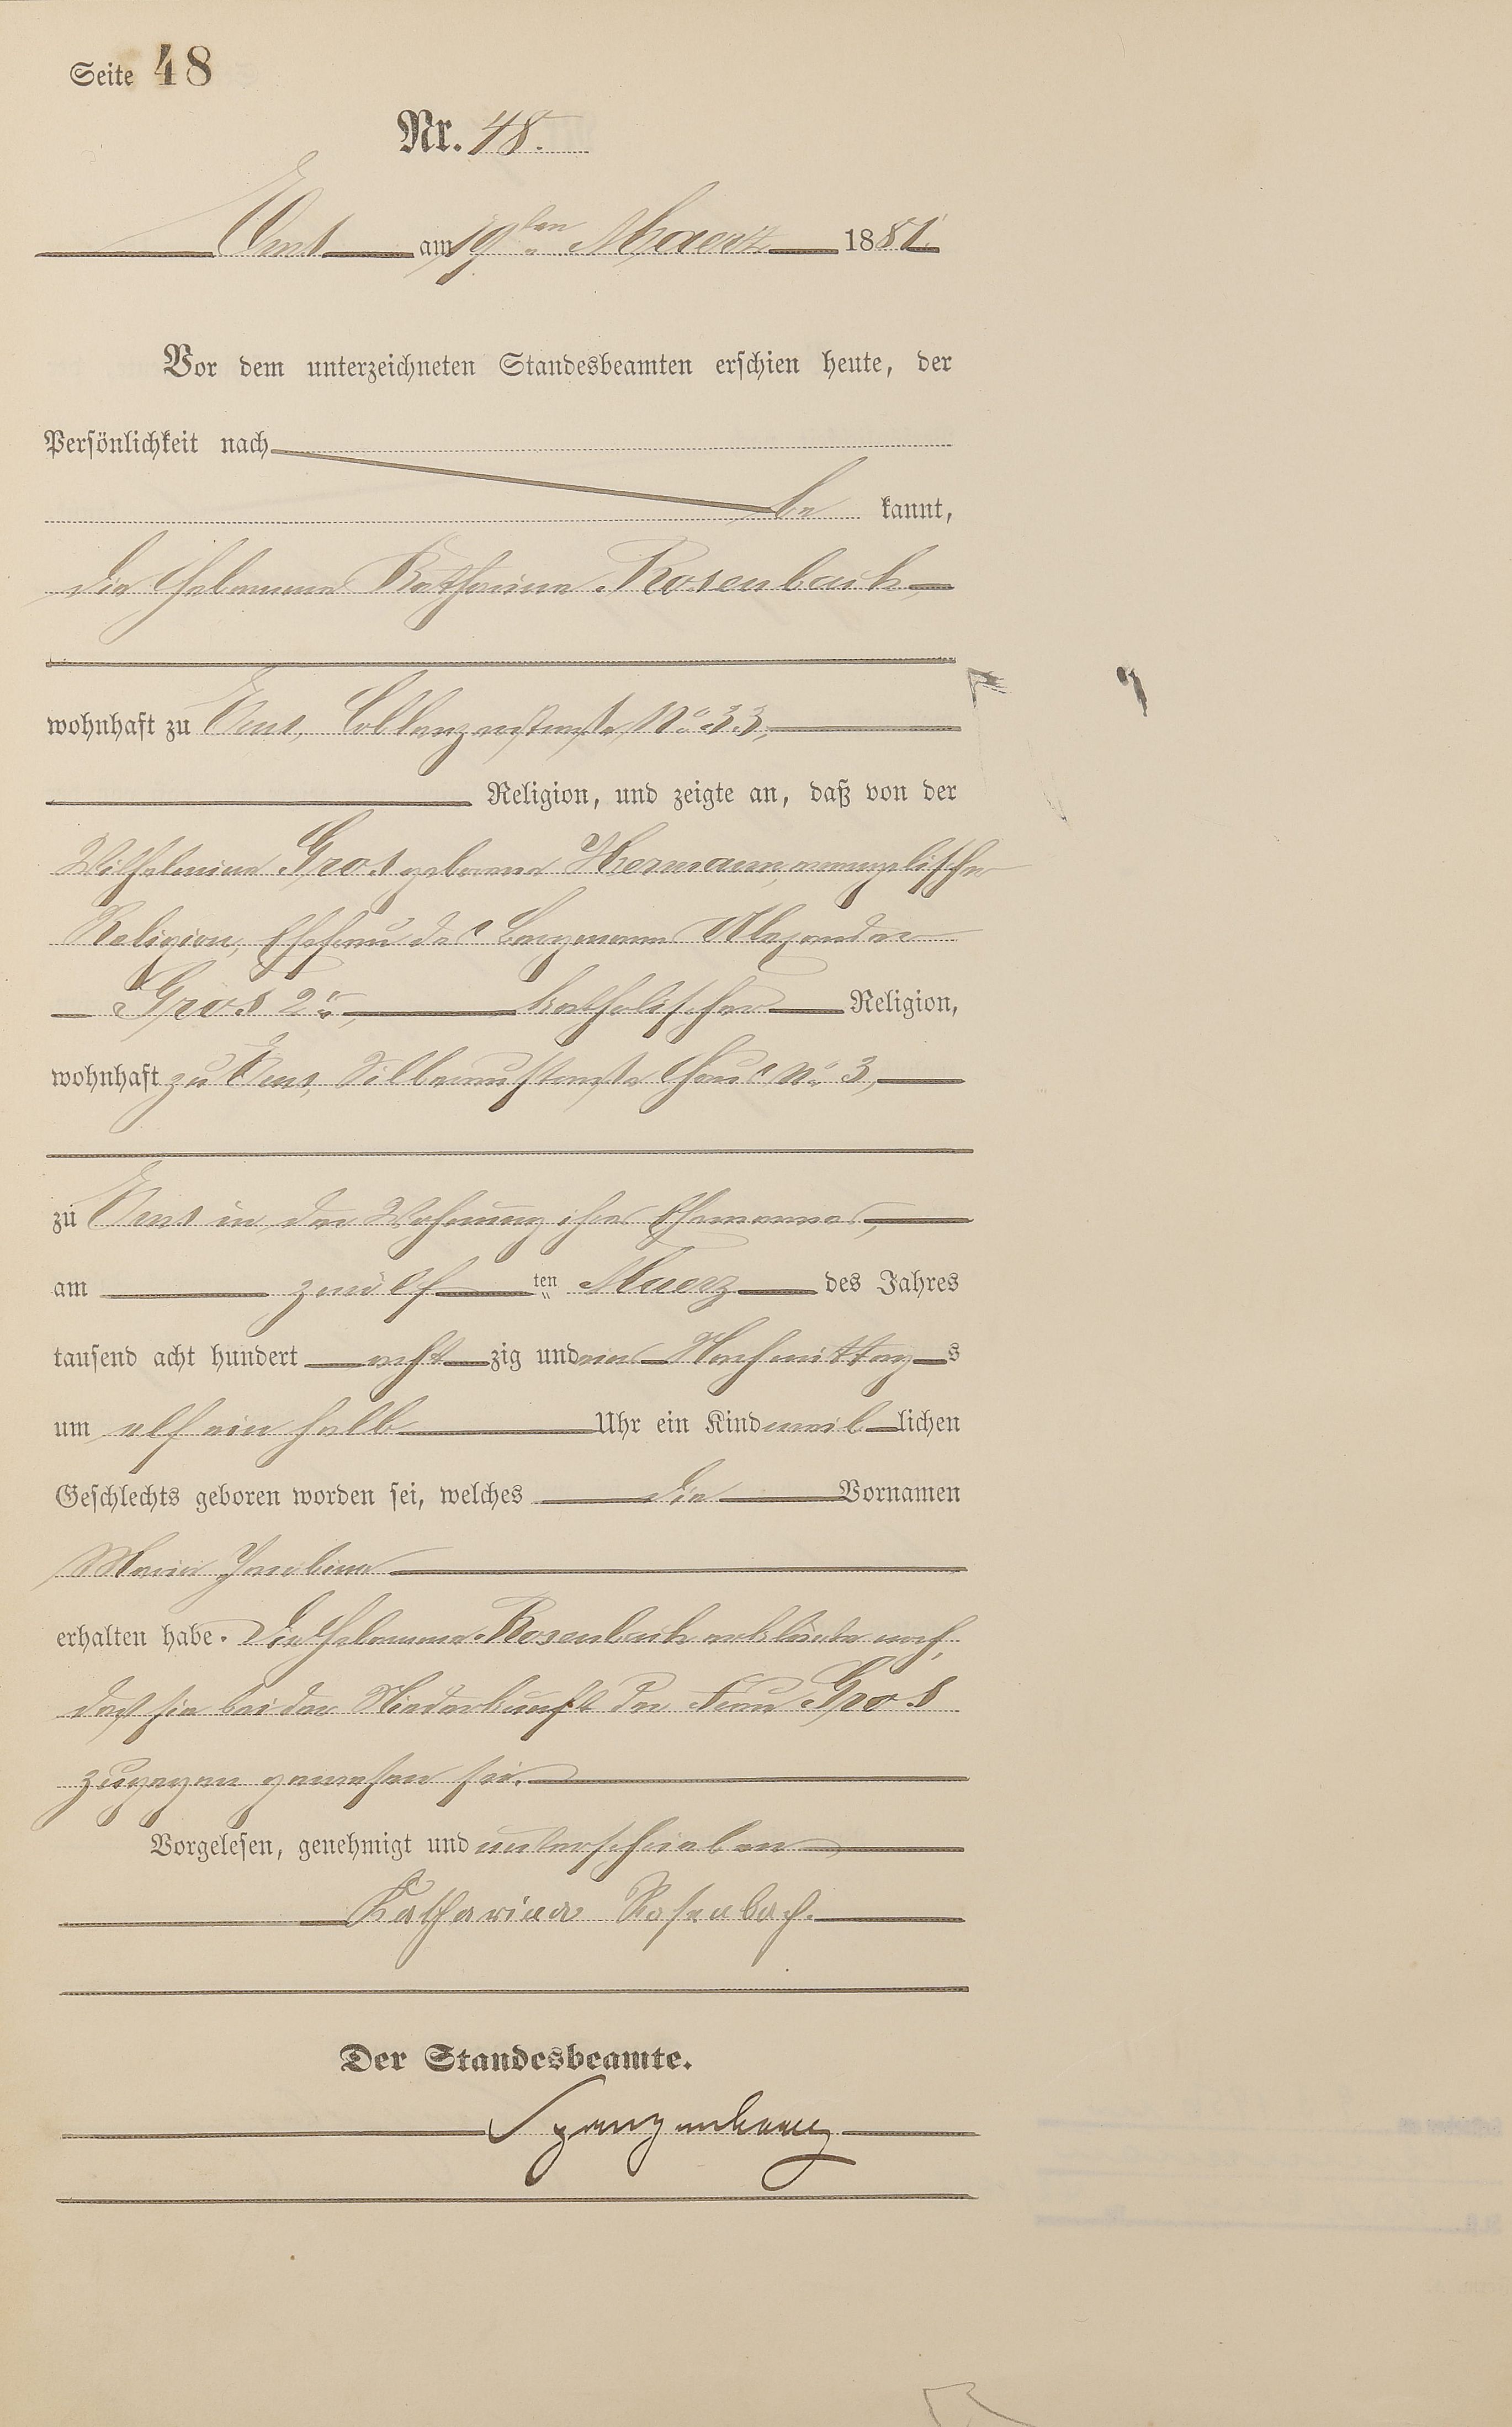 Seite 48
Nr. 48.
Ems am 19ten Maerz 1881
Vor dem unterzeichneten Standesbeamten erschien heute, der
Persönlichkeit nach
be kannt,
die Hebamme Katharina Rosenbach,
wohnhaft zu Ems, Coblenzerstraße No. 33,
Religion, und zeigte an, daß von der
Wilhelmine Gros geborene Hermann, evangelischer
Religion, Ehefrau des Bergmann Alexander
Gros 2r, katholischer Religion,
wohnhaft zu Ems, Silberaustraße Haus No. 3,
zu Ems in der Wohnung ihres Ehemannes,
am zwölf ten Maerz des Jahres
tausend acht hundert acht zig und ein Nachmittag s
um elf ein halb Uhr ein Kind weib lichen
Geschlechts geboren worden sei, welches die Vornamen
Maria
erhalten habe. Die Hebamme Rosenbach erklärte noch,
daß sie bei der Niederkunft der Frau Gros
zugegen gewesen sei.
Vorgelesen, genehmigt und unterschrieben
Katharina Rosenbach.
Der Standesbeamte.
Spangenberg